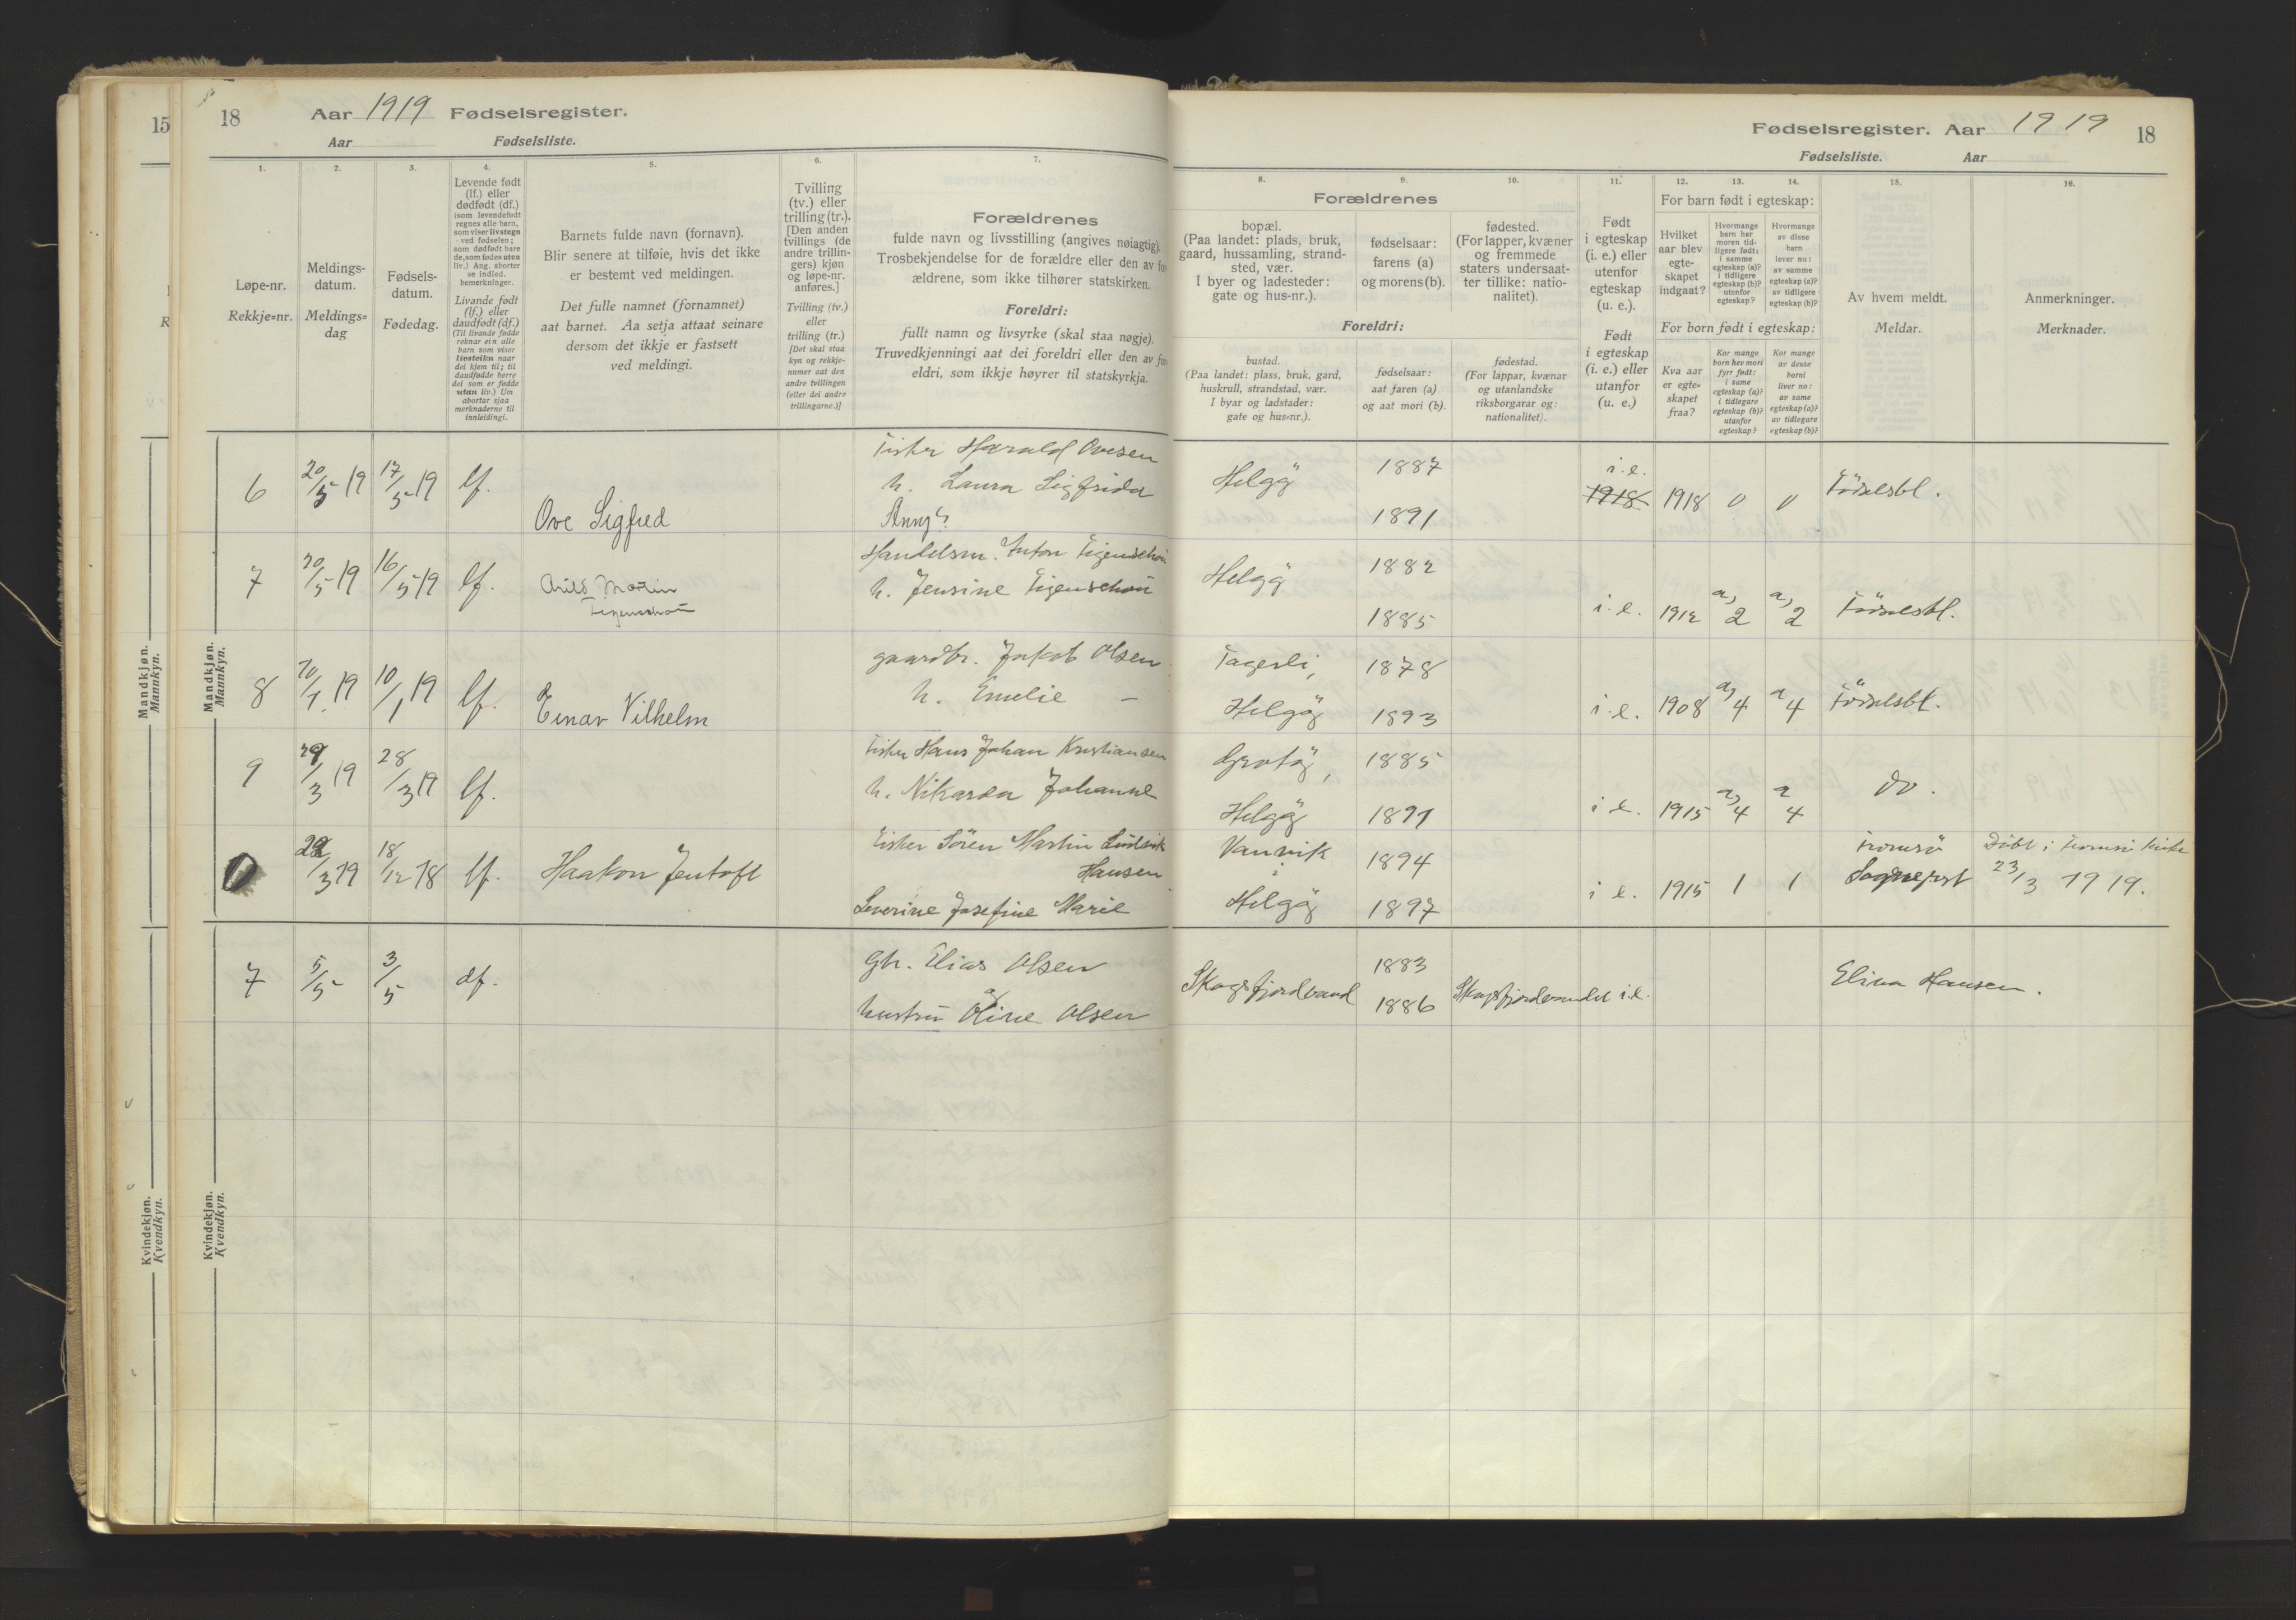 15
18
Aar 1919 Fødselsregister.
Aar Fødselsliste.
1.
2.
3.
4.
5.
6.
7.
Løpe-nr.
Rekkje=nr.
Meldings-
datum.
Meldings=
dag
Fødsels-
datum.
Fødedag.
Levende født
(lf.) eller
dødfødt (df.)
(som levendefødt
regnes alle barn,
som viser livstegn
ved fødselen;
som dødfødt bare
de, som fødes uten
liv.) Ang. aborter
se indled.
bemerkninger.
Livande født
(lf.) eller
daudfødt (df.)
(Til livande fødde
reknar ein alle
barn som viser
livsteikn naar
dei kjem til; til
daudfødde berre
dei som er fødde
utan liv.) Um
abortar sjaa
merknaderne til
innleidingi.
Barnets fulde navn (fornavn).
Blir senere at tilføie, hvis det ikke
er bestemt ved meldingen.
Det fulle namnet (fornamnet)
aat barnet. Aa setja attaat seinare
dersom det ikkje er fastsett
ved meldingi.
Tvilling
(tv.) eller
trilling (tr.).
[Den anden
tvillings (de
andre trillin-
gers) kjøn
og løpe-nr.
anføres.]
Tvilling (tv.)
eller
trilling (tr.)
[Det skal staa
kyn og rekkje-
numer aat den
andre tvillingen
(eller dei andre
trillingarne.)]
Forældrenes
fulde navn og livsstilling (angives nøiagtig).
Trosbekjendelse for de forældre eller den av for
ældrene, som ikke tilhører statskirken.
Foreldri:
fullt namn og livsyrke (skal staa nøgje).
Truvedkjenningi aat dei foreldri eller den av for
eldri, som ikkje høyrer til statskyrkja.
Mandkjøn.
Mannkyn.
Mandkjøn.
Mannkyn.
6 20/5 19 17/5 19 lf. Ove Sigfred
Fisker Harald Ovesen
h. Laura Sigfrida
7 20/5 19 16/5 19 lf. Arild Martin
Eigenschou
Handelsm. Anton Eigenschou
h. Jensine Eigenschou
8 10/1 19 lf. Einar Vilhelm
gaardbr. Jakob Olsen
h. Emelie —
9 /3 19 28/3 19 lf.
Fisker Hans Johan Kristiansen
h. Nikarda Johanne
/3 19 18/12 18 lf. Haakon Jentoft
Fisker Sören Martin Ludvik
Hansen
Severine Josefine Marie
Kvindekjøn.
Kvendkyn.
Kvindekjøn.
Kvendkyn.
7 5/5 3/5 df.
Gh. Elias Olsen
og
hustru Oline Olsen
Fødselsregister. Aar 1919 18
Fødselsliste. Aar
8.
9.
10.
11.
12.
13.
14.
15.
16.
Forældrenes
bopæl.
(Paa landet: plads, bruk,
gaard, hussamling, strand-
sted, vær.
I byer og ladesteder:
gate og hus-nr.).
fødselsaar:
farens (a)
og morens (b).
fødested.
(For lapper, kvæner
og fremmede
staters undersaat-
ter tillike: natio-
nalitet).
Foreldri:
bustad.
(Paa landet: plass, bruk, gard,
huskrull, strandstad, vær.
I byar og ladstader:
gate og hus=nr.).
fødselsaar:
aat faren (a)
og aat mori (b).
fødestad.
(For lappar, kvænar
og utanlandske
riksborgarar og:
nationalitet).
Født
i egteskap
(i. e.) eller
utenfor
egteskap
(u. e.).
Født
i egteskap
(i. e.) eller
utanfor
(u. e.)
For barn født i egteskap:
Hvilket
aar blev
egte-
skapet
indgaat?
Hvormange
barn har
moren tid-
ligere født:
i samme
egteskap (a)?
i tidligere
egteskap (b)?
utenfor
egteskap?
Hvormange
av disse
barn
lever nu:
av samme
egteskap (a)?
av tidligere
egteskap (b)?
For born født i egteskap:
Kva aar
er egte=
skapet
fraa?
Kor mange
born hev mori
fyrr født:
i same
egteskap (a)?
i tidlegare
egteskap (b)?
utanfor
egteskap?
Kor mange
av desse
borni
liver no:
av same
egteskap (a)?
av tidlegare
egteskap (b)?
Av hvem meldt.
Meldar.
Anmerkninger.
Merknader.
Helgö 1887 i. e. 1918 1918 0 0 Födselsbl.
1891
Helgö 1882
1885 i. e. 1912 a, 2 a, 2 Födselsbl.
1878
Helgö 1893 i. e. 1908 a, 4 a 4 Födselsbl.
Grotö, 1885
Helgö i e. 1915 a, 4 a 4 do.
Vannvik 1894
Helgö 1897 i e. 1915 1 1 Tromsö
Sognepr
Döbt i Tromsö kirke
23/3 1919.
Skogsfjordvand 1883
1886 Skogsfjordvandet i. e. Elina Hansen.